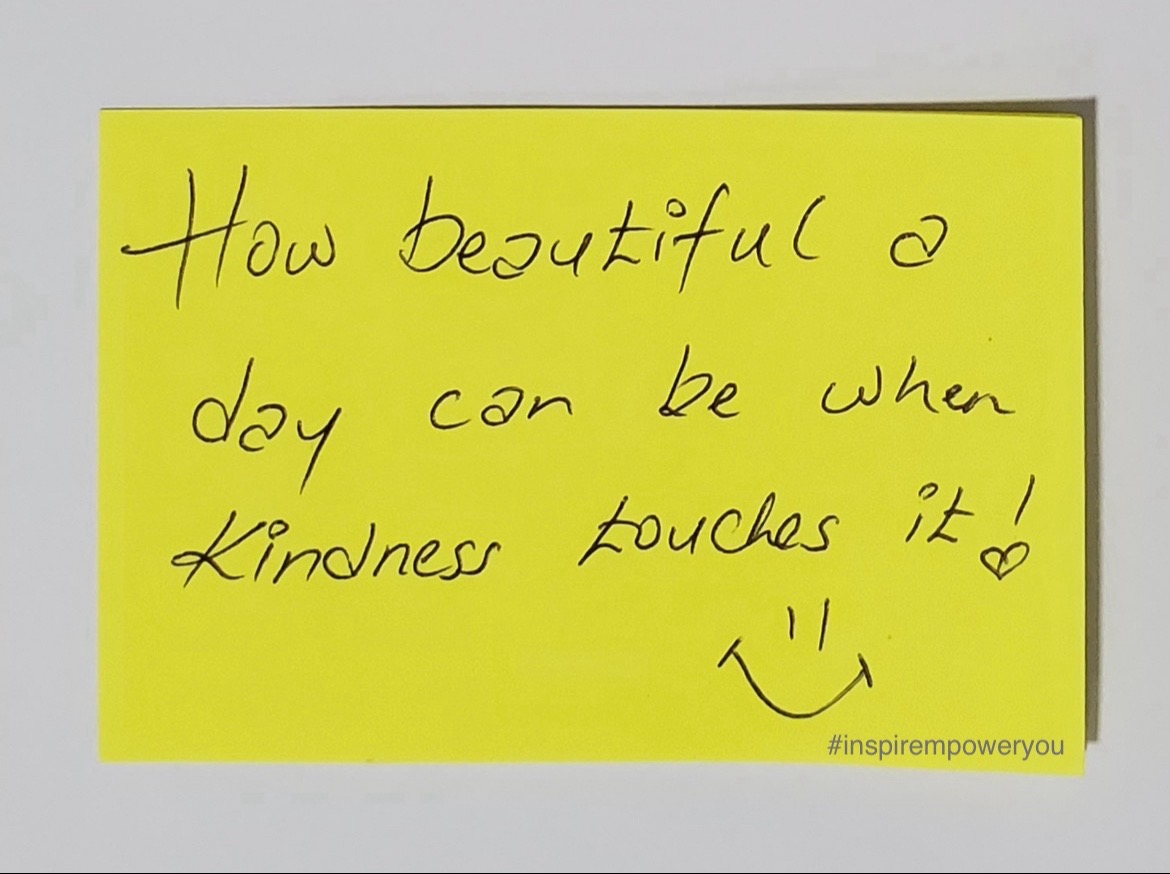 How beautiful a
day can be when
Kindness touches it!
#inspirempoweryou